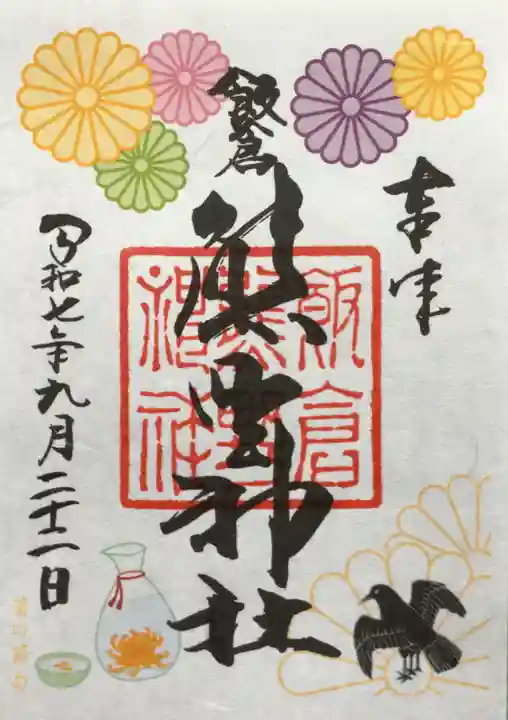 奉拝
飯倉
熊野神社
飯倉
熊野
神社
令和七年九月二十一日
菊の節句